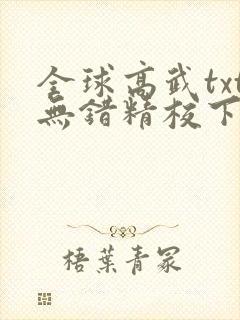 全球高武txt
無錯精校下
梧葉青冢